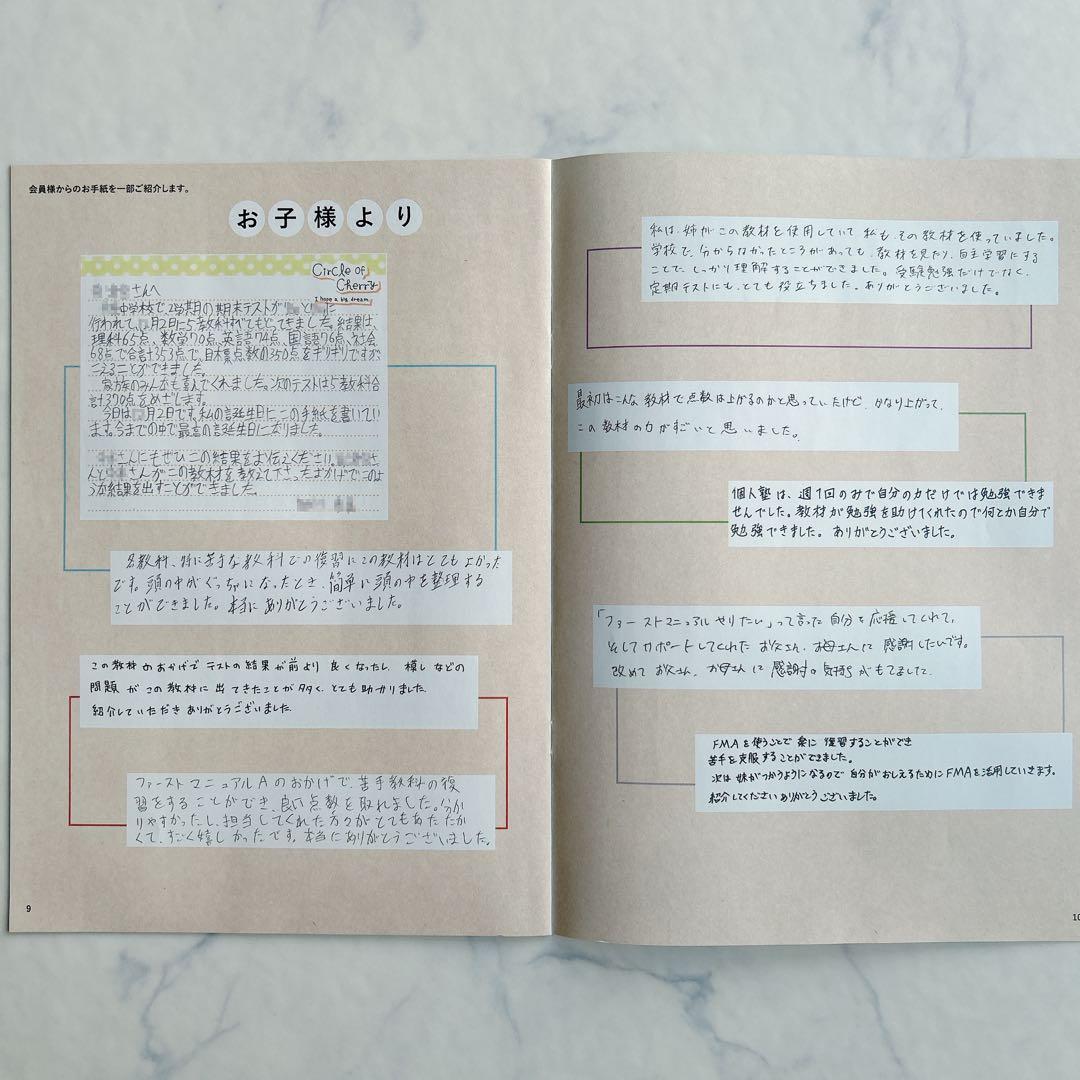 会員様からのお手紙を一部ご紹介します。
お子様より
Circle of
Cherry
I hope a big dream
さんへ
中学校で、2学期の期末テストが と に
行われて、 月2日に5教科すべてもどってきました。結果は、
理科65点、数学70点、英語74点、国語76点、社会
68点で合計353点で、目標点数の350点をギリギリですが
こえることができました。
家族のみんなも喜んでくれました。次のテストは5教科合
計370点をめざします。
今日は 月2日です。私の誕生日にこの手紙を書いてい
ます。今までの中で最高の誕生日になりました。
さんにもぜひこの結果をお伝えください。 さ
んと さんがこの教材を教えて下さったおかげで、このよ
うな結果を出すことができました。
各教科、特に苦手な教科での復習にこの教材はとてもよかった
です。頭の中がぐっちゃになったとき、簡単に頭の中を整理する
ことができました。本当にありがとうございました。
この教材のおかげでテストの結果が前より良くなったし、模しなどの
問題がこの教材に出てきたことが多く、とても助かりました。
紹介していただきありがとうございました。
ファーストマニュアルAのおかげで、苦手教科の復
習をすることができ、良い点数を取れました。分か
りやすかったし、担当してくれた方々がとてもあたたか
くて、すごく嬉しかったです。本当にありがとうございました。
9
私は、姉がこの教材を使用していて私もその教材を使っていました。
学校で、分からなかったところがあっても、教材を見たり、自主学習にする
ことで、しっかり理解することができました。受験勉強だけでなく、
定期テストにも、とても役立ちました。ありがとうございました。
最初はこんな教材で点数は上がるのかと思っていたけど、かなり上がって、
この教材の力がすごいと思いました。
個人塾は、週1回のみで自分の力だけでは勉強できま
せんでした。教材が勉強を助けてくれたので何とか自分で
勉強できました。ありがとうございました。
「ファーストマニュアルやりたい」って言った自分を応援してくれて、
そしてサポートしてくれたお父さん、お母さんに感謝したいです。
改めてお父さん、お母さんに感謝の気持ちがもてました。
FMAを使うことで楽に復習することができ
苦手を克服することができました。
次は妹がつかうようになるので自分がおしえるためにFMAを活用していきます。
紹介してくださいありがとうございました。
10